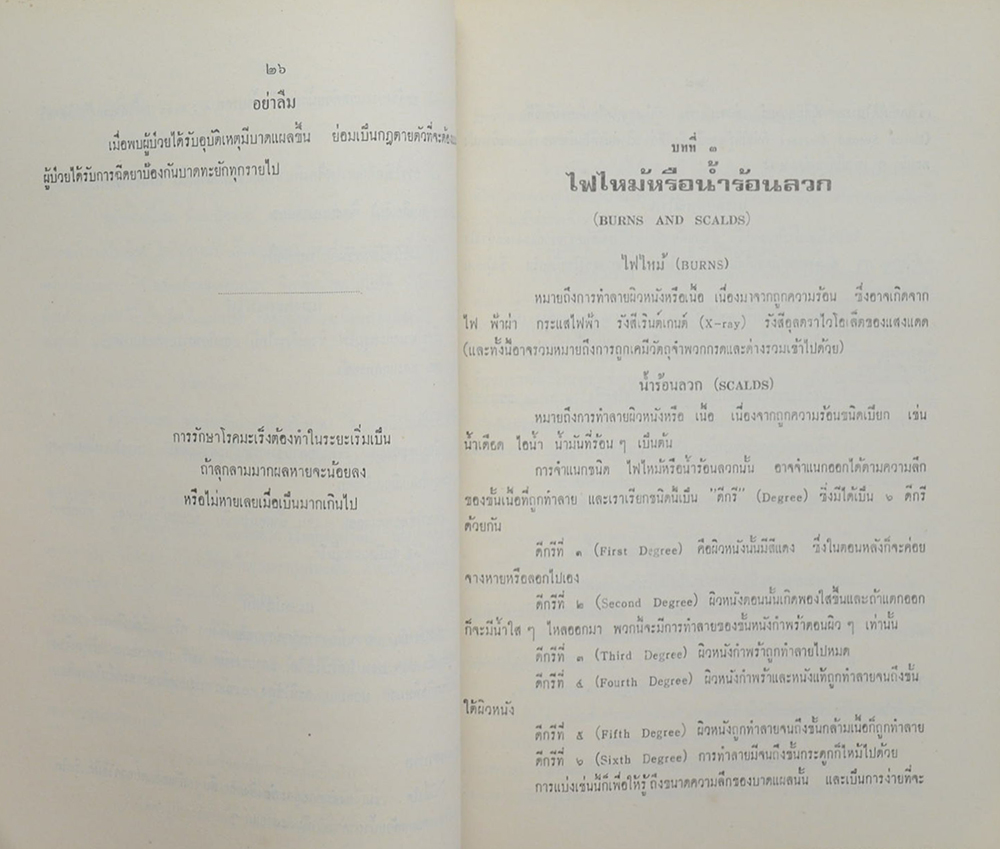 ๒๖
อย่าลืม
เมื่อพบผู้ป่วยได้รับอุบัติเหตุมีบาดแผลขึ้น ย่อมเป็นกฎตายตัวที่จะต้อง
ผู้ป่วยได้รับการฉีดยาป้องกันบาดทะยักทุกรายไป
การรักษาโรคมะเร็งต้องทำในระยะเริ่มเป็น
ถ้าลุกลามมากผลหายจะน้อยลง
หรือไม่หายเลยเมื่อเป็นมากเกินไป
บทที่ ๓
ไฟไหม้หรือน้ำร้อนลวก
(BURNS AND SCALDS)
ไฟไหม้ (BURNS)
หมายถึงการทำลายผิวหนังหรือเนื้อ เนื่องมาจากถูกความร้อน ซึ่งอาจเกิดจาก
ไฟ ฟ้าผ่า กระแสไฟฟ้า รังสีเรินต์เกนต์ (X-ray) รังสีอุลตราไวโอเล็ตของแสงแดด
(และทั้งนี้อาจรวมหมายถึงการถูกเคมีวัตถุจำพวกกรดและด่างรวมเข้าไปด้วย)
น้ำร้อนลวก (SCALDS)
หมายถึงการทำลายผิวหนังหรือ เนื้อ เนื่องจากถูกความร้อนชนิดเปียก เช่น
น้ำเดือด ไอน้ำ น้ำมันที่ร้อน ๆ เป็นต้น
การจำแนกชนิด ไฟไหม้หรือน้ำร้อนลวกนั้น อาจจำแนกออกได้ตามความลึก
ของชั้นเนื้อที่ถูกทำลาย และเราเรียกชนิดนี้เป็น "ดีกรี" (Degree) ซึ่งมีได้เป็น ๖ ดีกรี
ด้วยกัน
ดีกรีที่ ๑ (First Degree) คือผิวหนังนั้นมีสีแดง ซึ่งในตอนหลังก็จะค่อย
จางหายหรือลอกไปเอง
ดีกรีที่ ๒ (Second Degree) ผิวหนังตอนนั้นเกิดพองใสขึ้นและถ้าแตกออก
ก็จะมีน้ำใส ๆ ไหลออกมา พวกนี้จะมีการทำลายของชั้นหนังกำพร้าตอนผิว ๆ เท่านั้น
ดีกรีที่ ๓ (Third Degree) ผิวหนังกำพร้าถูกทำลายไปหมด
ดีกรีที่ ๔ (Fourth Degree) ผิวหนังกำพร้าและหนังแท้ถูกทำลายจนถึงชั้น
ใต้ผิวหนัง
ดีกรีที่ ๕ (Fifth Degree) ผิวหนังถูกทำลายจนถึงชั้นกล้ามเนื้อก็ถูกทำลาย
ดีกรีที่ ๖ (Sixth Degree) การทำลายมีจนถึงชั้นกระดูกก็ไหม้ไปด้วย
การแบ่งเช่นนี้ก็เพื่อให้รู้ถึงขนาดความลึกของบาดแผลนั้น และเป็นการง่ายที่จะ